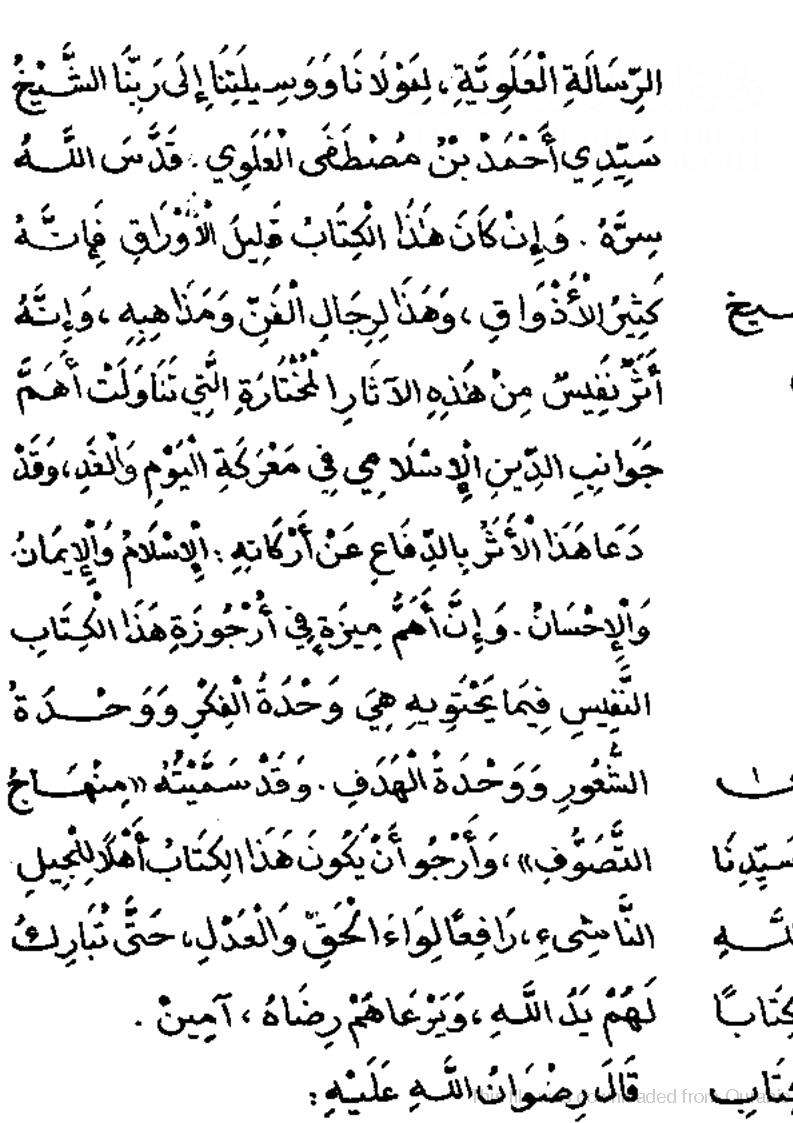 الرِّسَالَةِ الْعَلَوِيَّةِ، لِمَوْلَانَا وَوَسِيلَتِنَا إِلَى رَبِّنَا الشَّيْخُ
سَيِّدِي أَحْمَدْ بْنُ مُصْطَفَى الْعَلَوِي. قَدَّسَ اللَّهُ
سِرَّهُ. وَإِنْ كَانَ هَذَا الْكِتَابُ قَلِيلَ الْأَوْرَاقِ فَإِنَّهُ
كَثِيرُ الْأَذْوَاقِ، وَهَذَا لِرِجَالِ الْفَنِّ وَمَذَاهِبِهِ، وَإِنَّهُ
أَثَرٌ نَفِيسٌ مِنْ هَذِهِ الآثَارِ الْمُخْتَارَةِ الَّتِي تَنَاوَلَتْ أَهَمَّ
جَوَانِبِ الدِّينِ الْإِسْلَامِي فِي مَعْرَكَةِ الْيَوْمِ وَالْغَدِ، وَقَدْ
دَعَا هَذَا الْأَثَرُ بِالدِّفَاعِ عَنْ أَرْكَانِهِ: الْإِسْلَامُ وَالْإِيمَانُ
وَالْإِحْسَانُ. وَإِنَّ أَهَمُّ مِيزَةٍ فِي أُرْجُوزَةِ هَذَا الْكِتَابِ
النَّفِيسِ فِيمَا يَحْتَوِيهِ هِيَ وَحْدَةُ الْفِكْرِ وَوَحْدَةُ
الشُّعُورِ وَوَحْدَةُ الْهَدَفِ. وَقَدْ سَمَّيْتُهُ «مِنْهَاجُ
التَّصَوُّفِ»، وَأَرْجُو أَنْ يَكُونَ هَذَا الكِتَابُ أَهْلًا لِلْجِيلِ
النَّاشِىءِ، رَافِعًا لِوَاءَ الْحَقِّ وَالْعَدْلِ، حَتَّى تُبَارِكُ
لَهُمْ يَدُ اللَّهِ، وَيَرْعَاهُمْ رِضَاهُ، آمِينْ.
قَالَ رِضْوَانُ اللَّهِ عَلَيْهِ:
ـيخ
سَيِّدِنَا
اللَّهِ
كِتَابًا